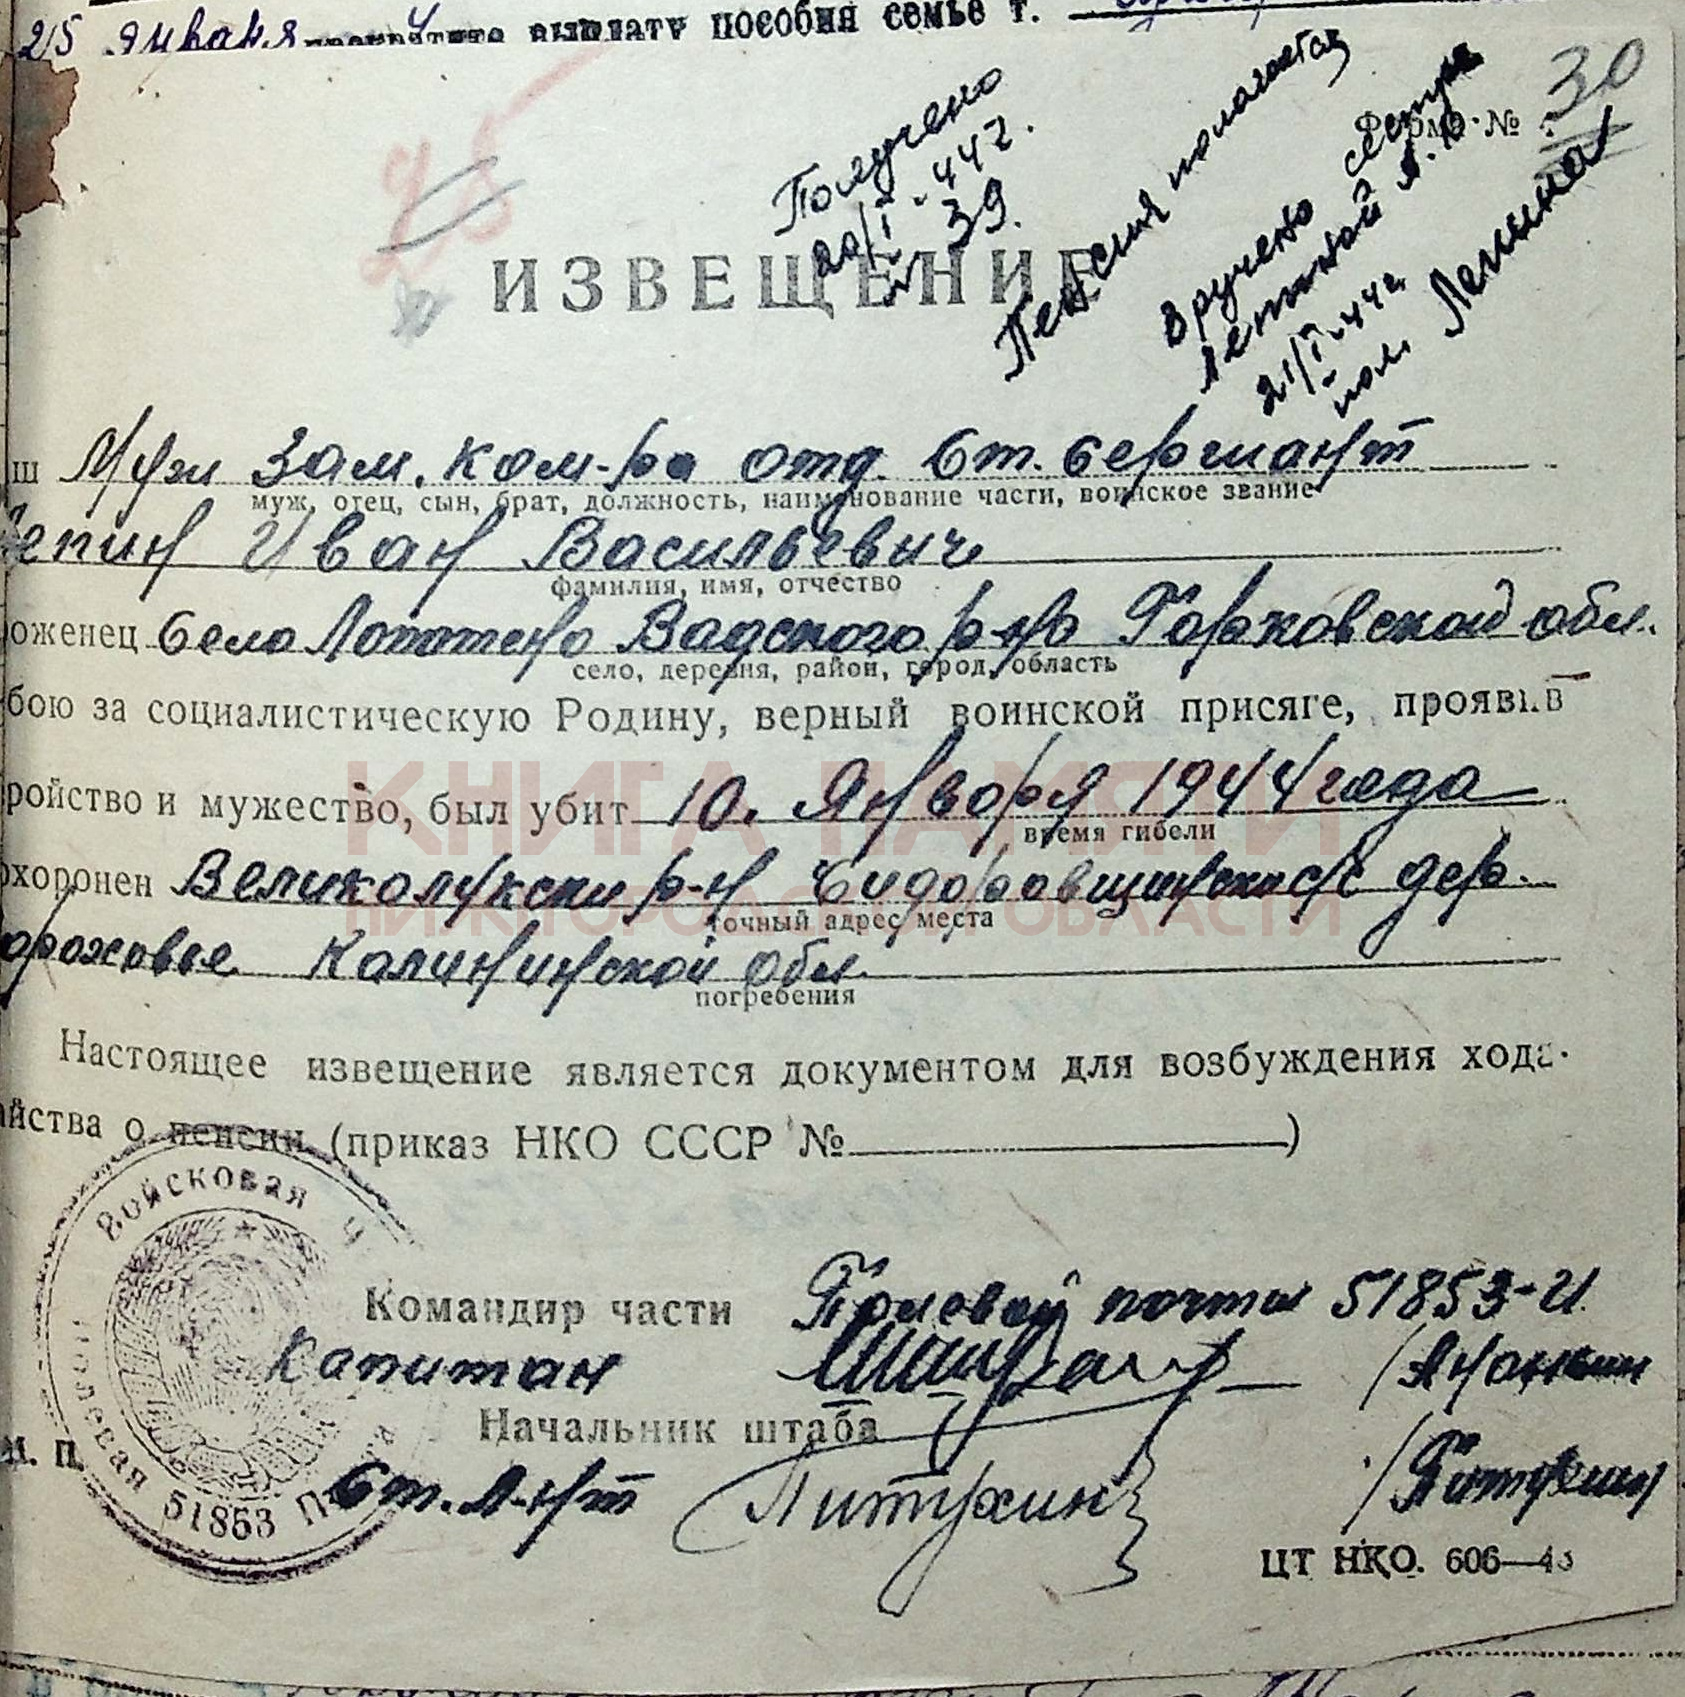 25 января прекратите выплату пособия семье т.
30
Форма №
48
Получено
20/I-44г.
39.
Пенсия полагается
Вручено сестре
Лепиной А.
21/I-44г.
пол. Лепина
ИЗВЕЩЕНИЕ
ш Муж Зам. ком-ра отд. Ст. сержант
муж, отец, сын, брат, должность, наименование части, воинское звание
Лепин Иван Васильевич
фамилия, имя, отчество
роженец село Лопатено Вадского р-на Горковской обл.
село, деревня, район, город, область
бою за социалистическую Родину, верный воинской присяге, проявив
ройство и мужество, был убит 10. Января 1944 года
время гибели
охоронен Великолукски р-н Сидоровщинского с/с дер.
точный адрес места
орожовье Калининской обл.
погребения
КНИГА ПАМЯТИ
НИЖЕГОРОДСКОЙ ОБЛАСТИ
Настоящее извещение является документом для возбуждения хода-
айства о пенсии (приказ НКО СССР № )
Войсковая
полевая 51853
Командир части Полевой почты 51853-И
Капитан
Начальник штаба
м. п.
Ст. л-нт Питухин /Питухин
ЦТ НКО. 606—43